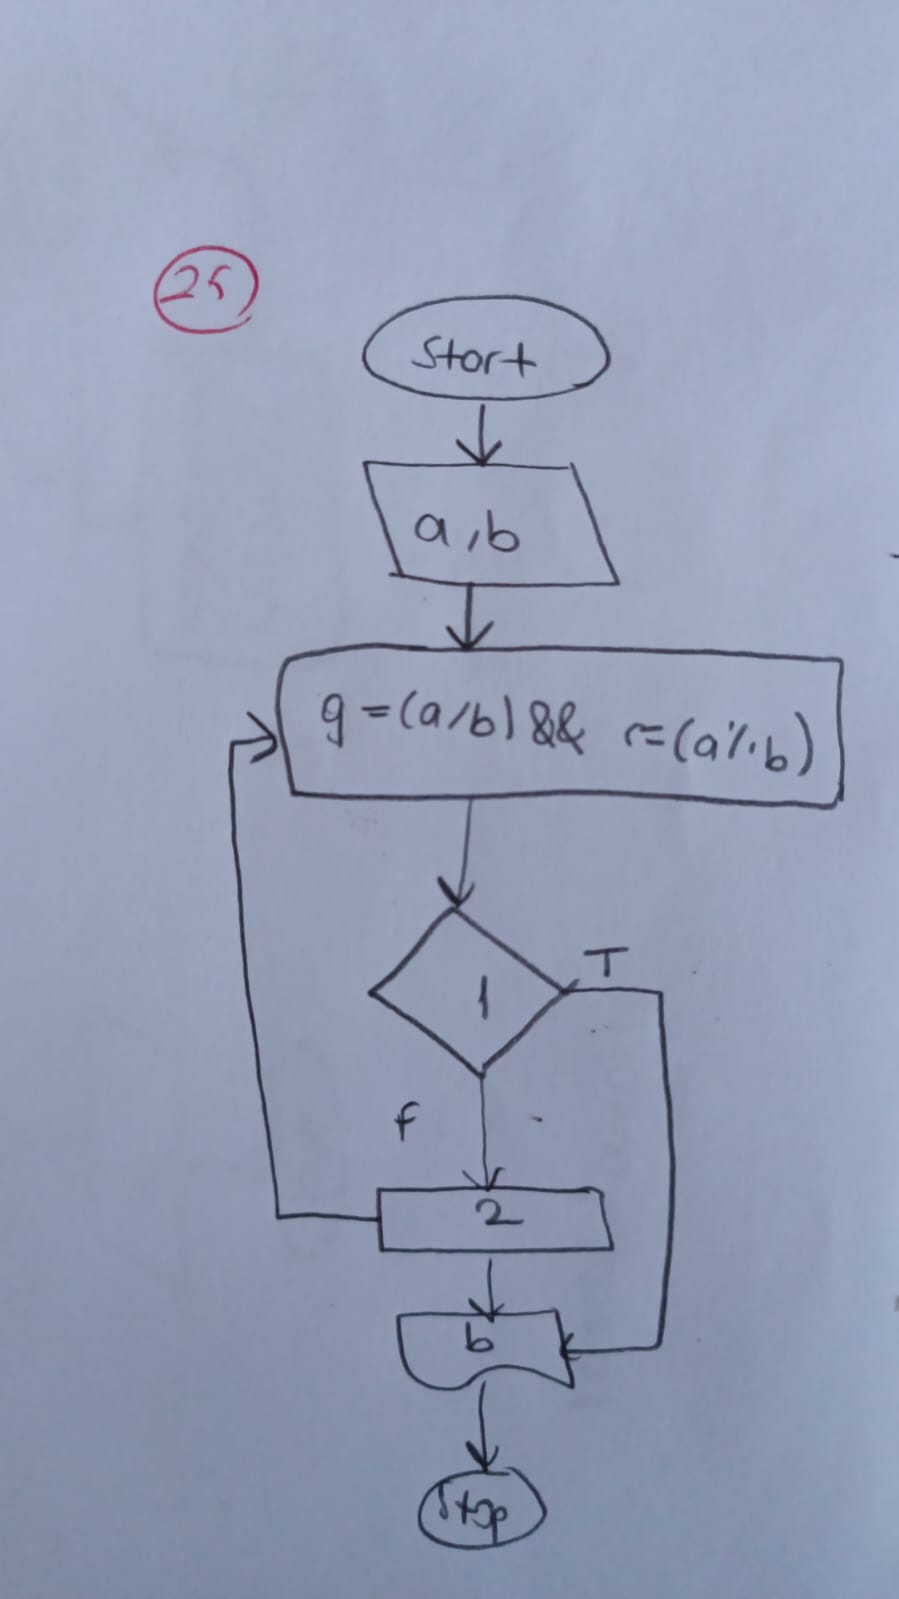 25
Start
a,b
g=(a/b) && r=(a%b)
1
T
f
2
b
Stop